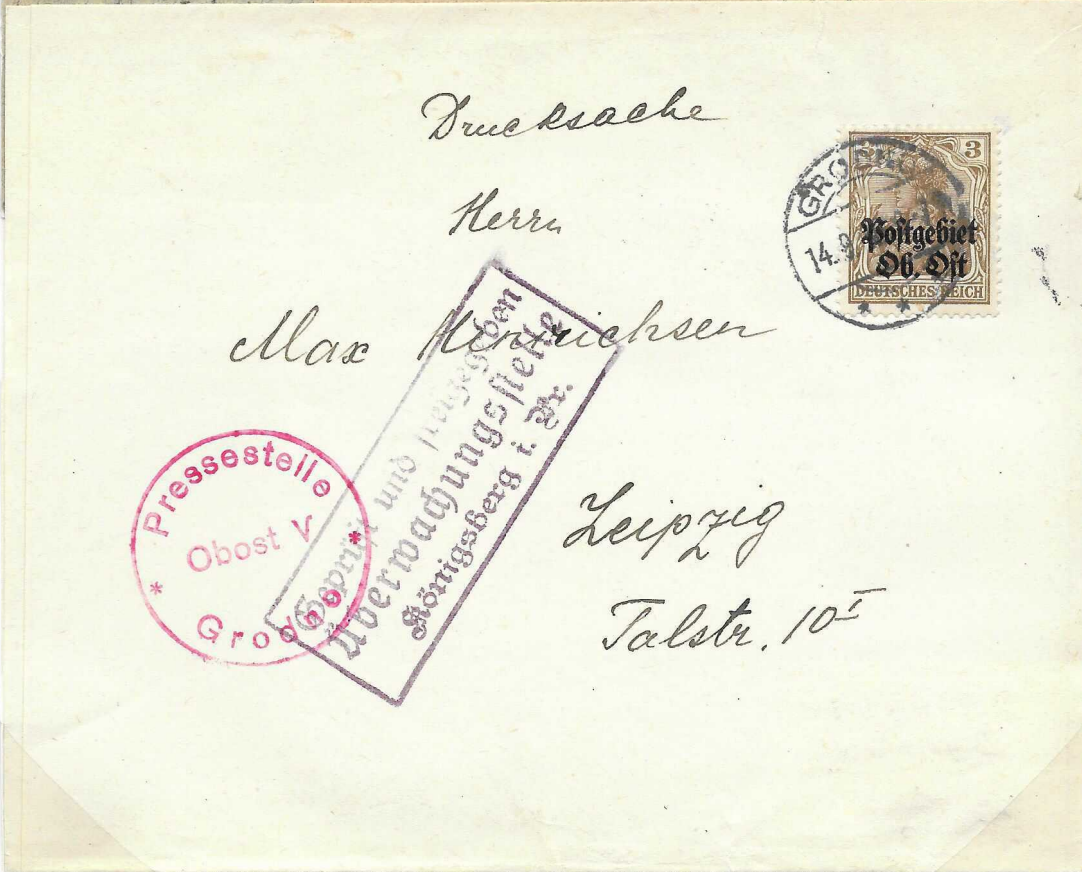 Drucksache
Herrn
Max Hinrichsen
Leipzig
Talstr. 10 I
3
Postgebiet
Ob. Ost
DEUTSCHES REICH
GRODNO
14.9
* *
Geprüft und freigegeben
Überwachungsstelle
Königsberg i. Pr.
Pressestelle
Obost V
* Grodno *